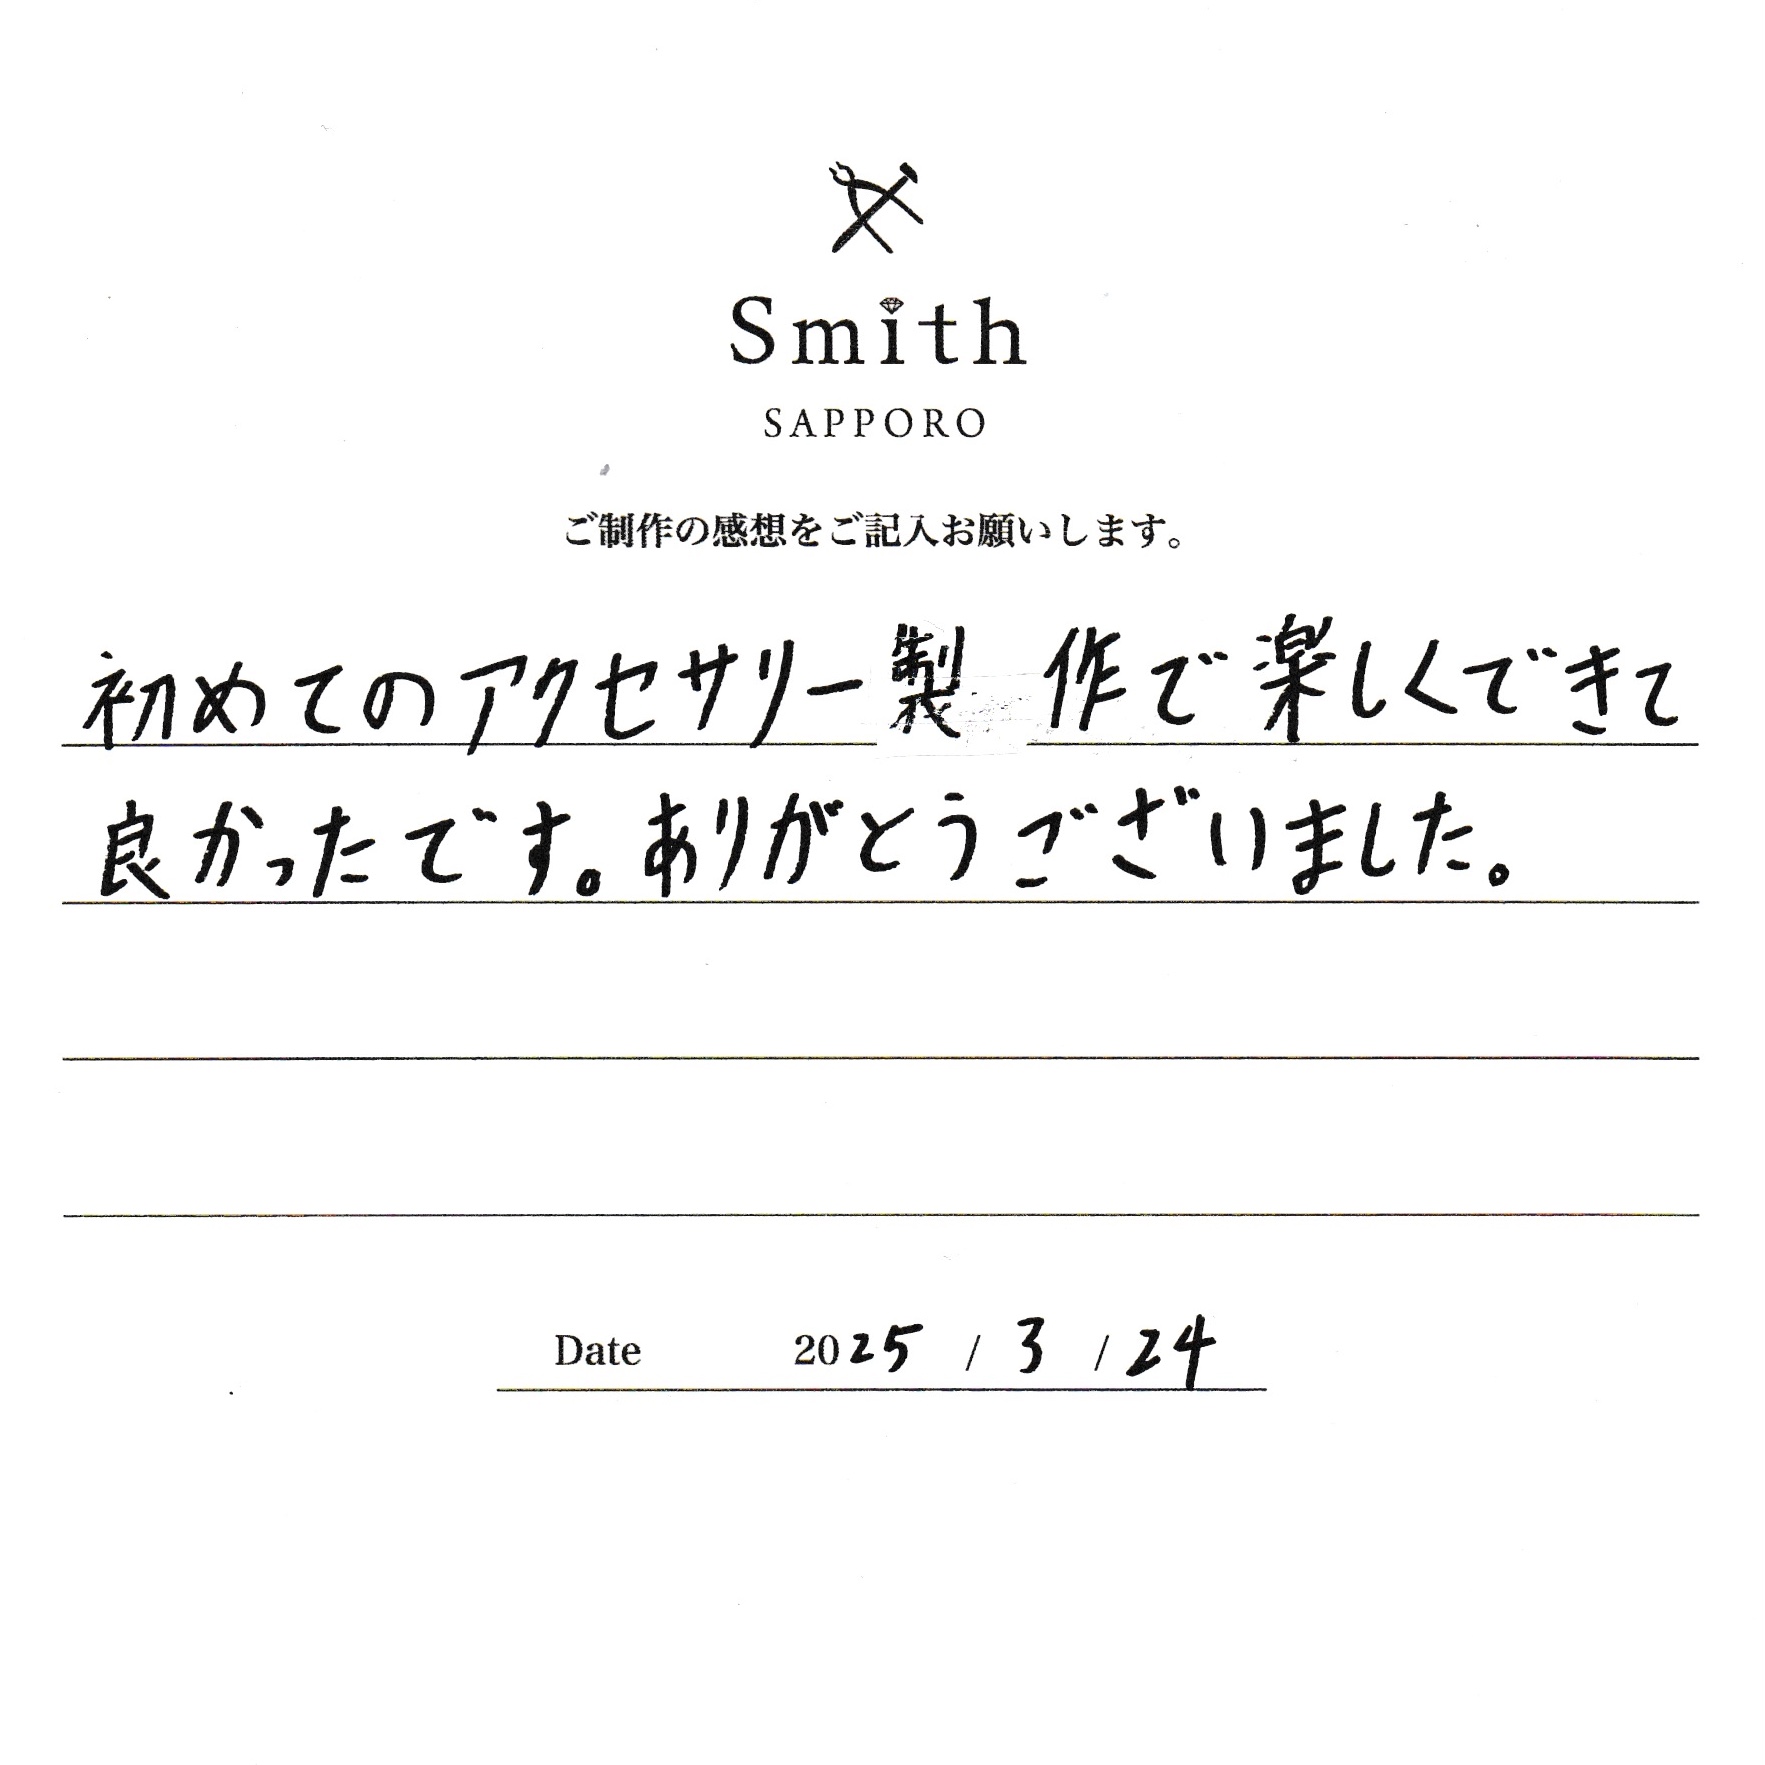 Smith
SAPPORO
ご制作の感想をご記入お願いします。
初めてのアクセサリー製作で楽しくできて
良かったです。ありがとうございました。
Date 2025 / 3 / 24